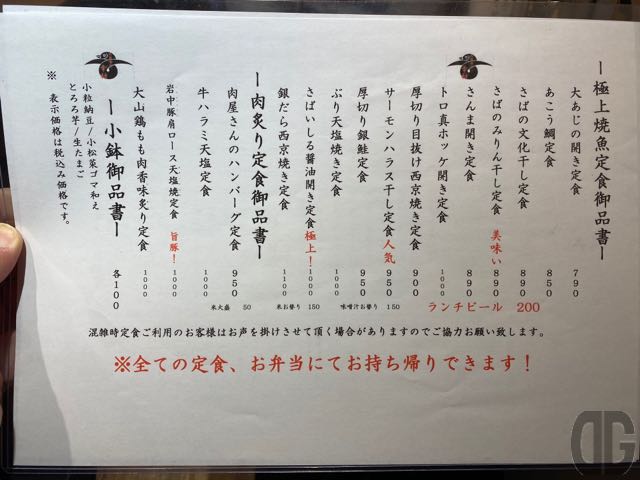 ー極上焼魚定食御品書ー
大あじの開き定食 790
あこう鯛定食 850
さばの文化干し定食 890
さばのみりん干し定食 美味い 890
さんま開き定食 890
トロ真ホッケ開き定食 1000
厚切り目抜け西京焼き定食 900
サーモンハラス干し定食人気 950
厚切り銀鮭定食 950
ぶり天塩焼き定食 950
さばいしる醤油開き定食極上！ 1000
銀だら西京焼き定食 1100
ー肉炙り定食御品書ー
肉屋さんのハンバーグ定食 950
牛ハラミ天塩定食 1000
岩中豚肩ロース天塩焼定食 旨豚！ 1000
大山鶏もも肉香味炙り定食 1000
ー小鉢御品書ー 各100
小粒納豆/小松菜ゴマ和え
とろろ芋/生たまご
※ 表示価格は税込み価格です。
米大盛 50 米お替り 150 味噌汁お替り 150 ランチビール 200
混雑時定食ご利用のお客様はお声を掛けさせて頂く場合がありますのでご協力お願い致します。
※全ての定食、お弁当にてお持ち帰りできます！
DG